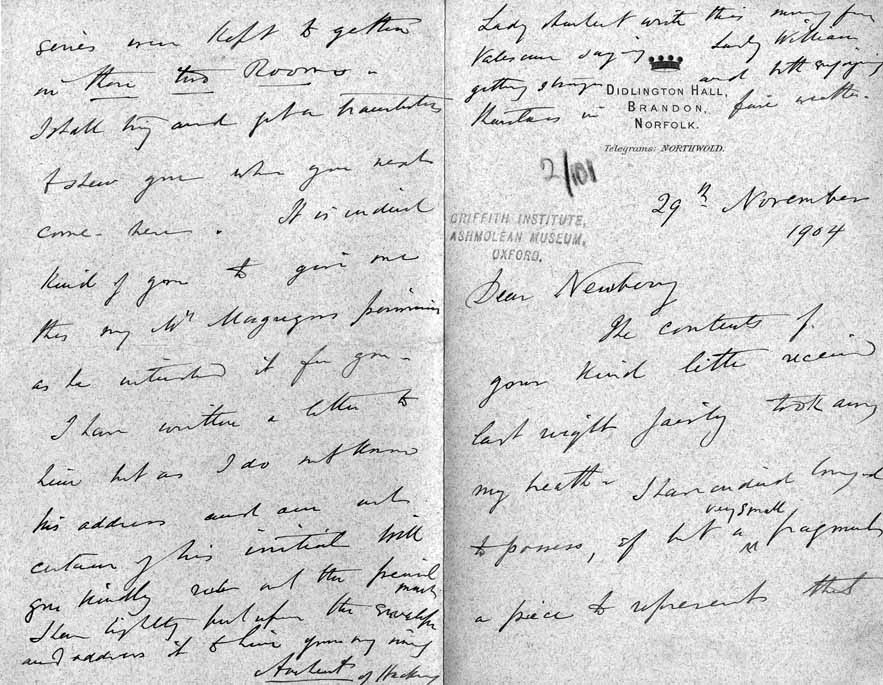 DIDLINGTON HALL,
BRANDON,
NORFOLK.
Telegrams: NORTHWOLD.
2/101
GRIFFITH INSTITUTE,
ASHMOLEAN MUSEUM,
OXFORD.
29th November
1904
Dear Newberry
The contents of
your kind letter received
last night fairly took away
my breath - I have indeed longed
to possess, if but a very small fragment
a piece to represent that
series were kept together
in these two Rooms -
I shall try and get a
to shew you when you next
come here. It is indeed
kind of you to give me
this my Mr Macgregors permission
as he intended it for you -
I have written a letter to
him but as I do not know
his address and am not
certain of his initial will
you kindly rub out the pencil
marks
I have lightly put upon the envelope
and address it to him
Amherst of Hackney
Lady Amherst writes this morning from
Valescure saying Lady William
getting stronger and both enjoying
in fine weather -